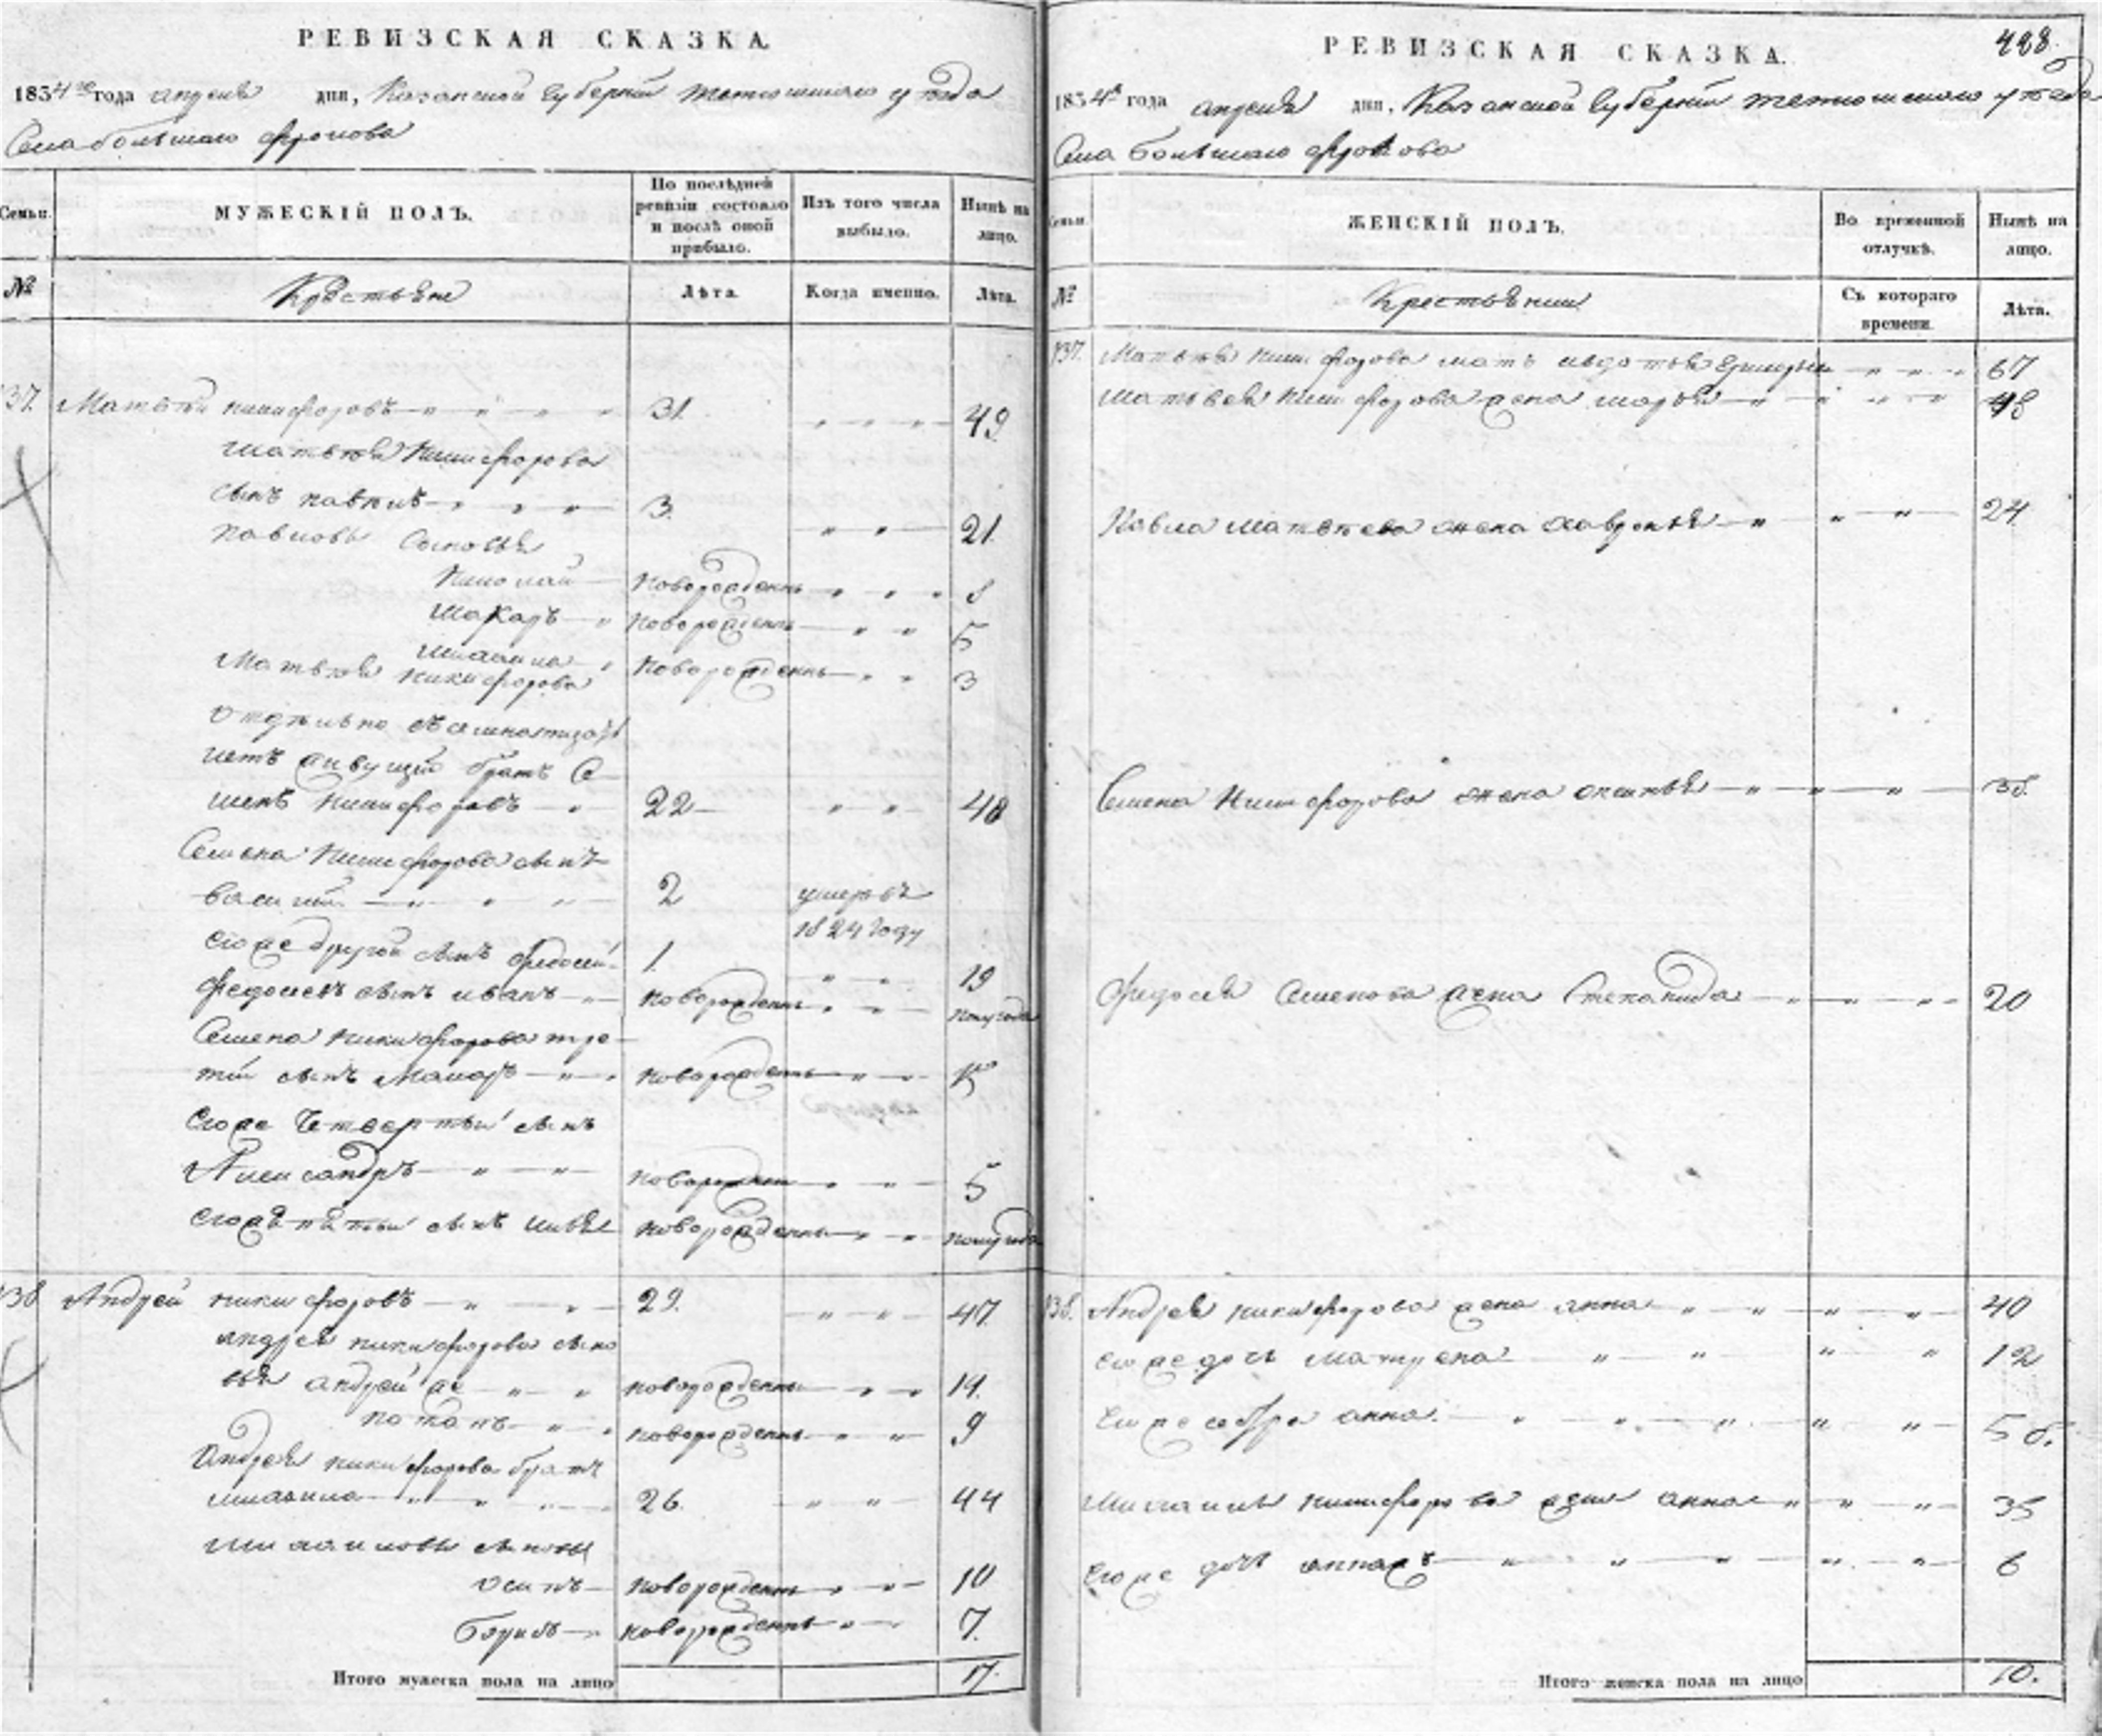 РЕВИЗСКАЯ СКАЗКА.
1834 го года апреля дня, Казанской Губернии тетюшскаго уезда
Села большаго фролова
Семьи.
МУЖЕСКІЙ ПОЛЪ.
По послѣдней ревизіи состояло и послѣ оной прибыло.
Изъ того числа выбыло.
Нынѣ на лицо.
№
Крестьяне
Лѣта.
Когда именно.
Лѣта.
137. Матвѣй никифоровъ 31. 49
матвѣя Никифорова
сынъ павилъ 3. 21.
павловы сыновья
Николай новорожденнъ 8
макаръ новорожденнъ 5
михаила новорожденнъ 3
Матвѣя никифорова
отдѣльно
живущій братъ Се-
менъ никифоровъ 22 48
Семена Никифорова сынъ
василий 2 умеръ въ
1824 году
его же другой сынъ федосей 1. 19
федосеевъ сынъ иванъ новорожденнъ полугода
Семена никифорова тре-
тій сынъ Макаръ новорожденнъ
Его же Четвертый сынъ
Александръ новорожденнъ 5
его же пятый сынъ илья новорожденнъ полугода
138 Андрей никифоровъ 29. 47
андрея никифорова сыно
вья андрей же новорожденнъ 19.
потапъ новорожденнъ 9
Андрея никифорова братъ
михаила 26. 44
михаиловы сыновья
осипъ новорожденнъ 10
новорожденнъ 7.
Итого мужеска пола на лицо 17.
РЕВИЗСКАЯ СКАЗКА.
428.
1834 го года апреля дня, Казанской Губернии тетюшскаго уезда
Села большаго фролова
Семьи.
ЖЕНСКІЙ ПОЛЪ.
Во временной отлучкѣ.
Нынѣ на лицо.
№
Крестьянки
Съ котораго времени.
Лѣта.
137. Матвѣя никифорова мать авдотья 67
матвея никифорова жена марья 48
Павла матвѣева жена хавронья 24
Семена Никифорова жена оксинья 38
федосея Семенова жена Степанида 20
138. Андрея никифорова жена анна 40
его же дочь матрена 12
Его же сестра анна 56.
михаилы никифорова жена анна 35
Его же дочь анна жъ 6
Итого женска пола на лицо 10.